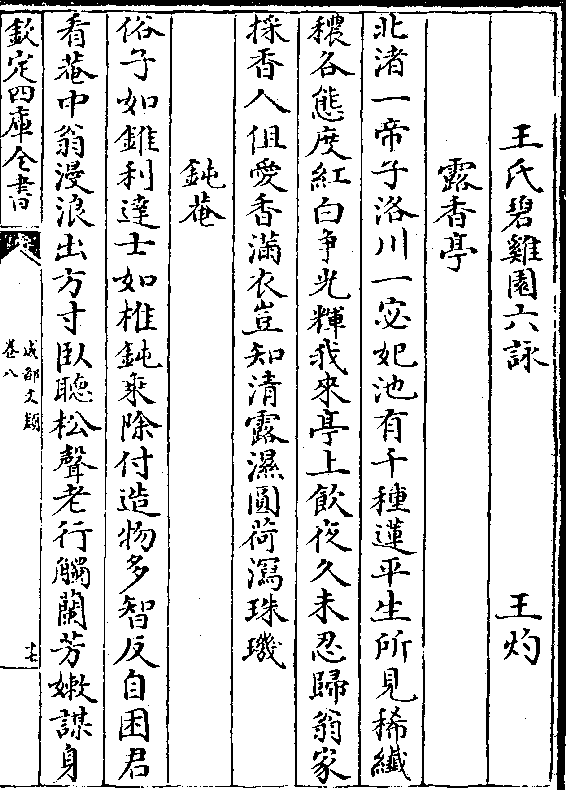 王氏碧雞園六詠　王灼
露香亭
北渚一帝子洛川一宓妃池有千種蓮平生所見稀纖
穠各態度紅白争光輝我來亭上飲夜久未忍歸翁家
採香人但愛香滿衣豈知清露濕圓荷瀉珠璣
鈍菴
俗子如錐利達士如椎鈍乘除付造物多智反自困君
看菴中翁漫浪出方寸臥聽松聲老行觸蘭芳嫩謀身
欽定四庫全書
成都文類
卷八